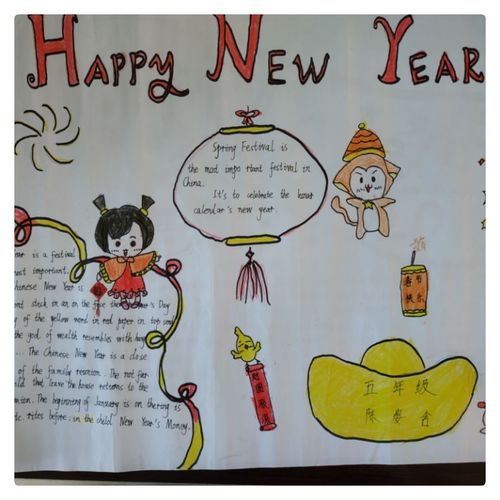 HAPPY NEW YEAR
Spring Festival is
the most impo rtant festival in
China.
It's to celebrate the lunar
calendar's new year.
ear is a festival
most important.
hinese New Year is
ont stuck on an on the
's Day
y of the yellow word in red paper in top
the god of wealth resembles with
... The Chinese New Year is a close
of the family reunion. The not far
ld that leave the house returns to the
ntion. The beginning of January is on thering is
te. rites before. in the child New Year's Money.
五年级